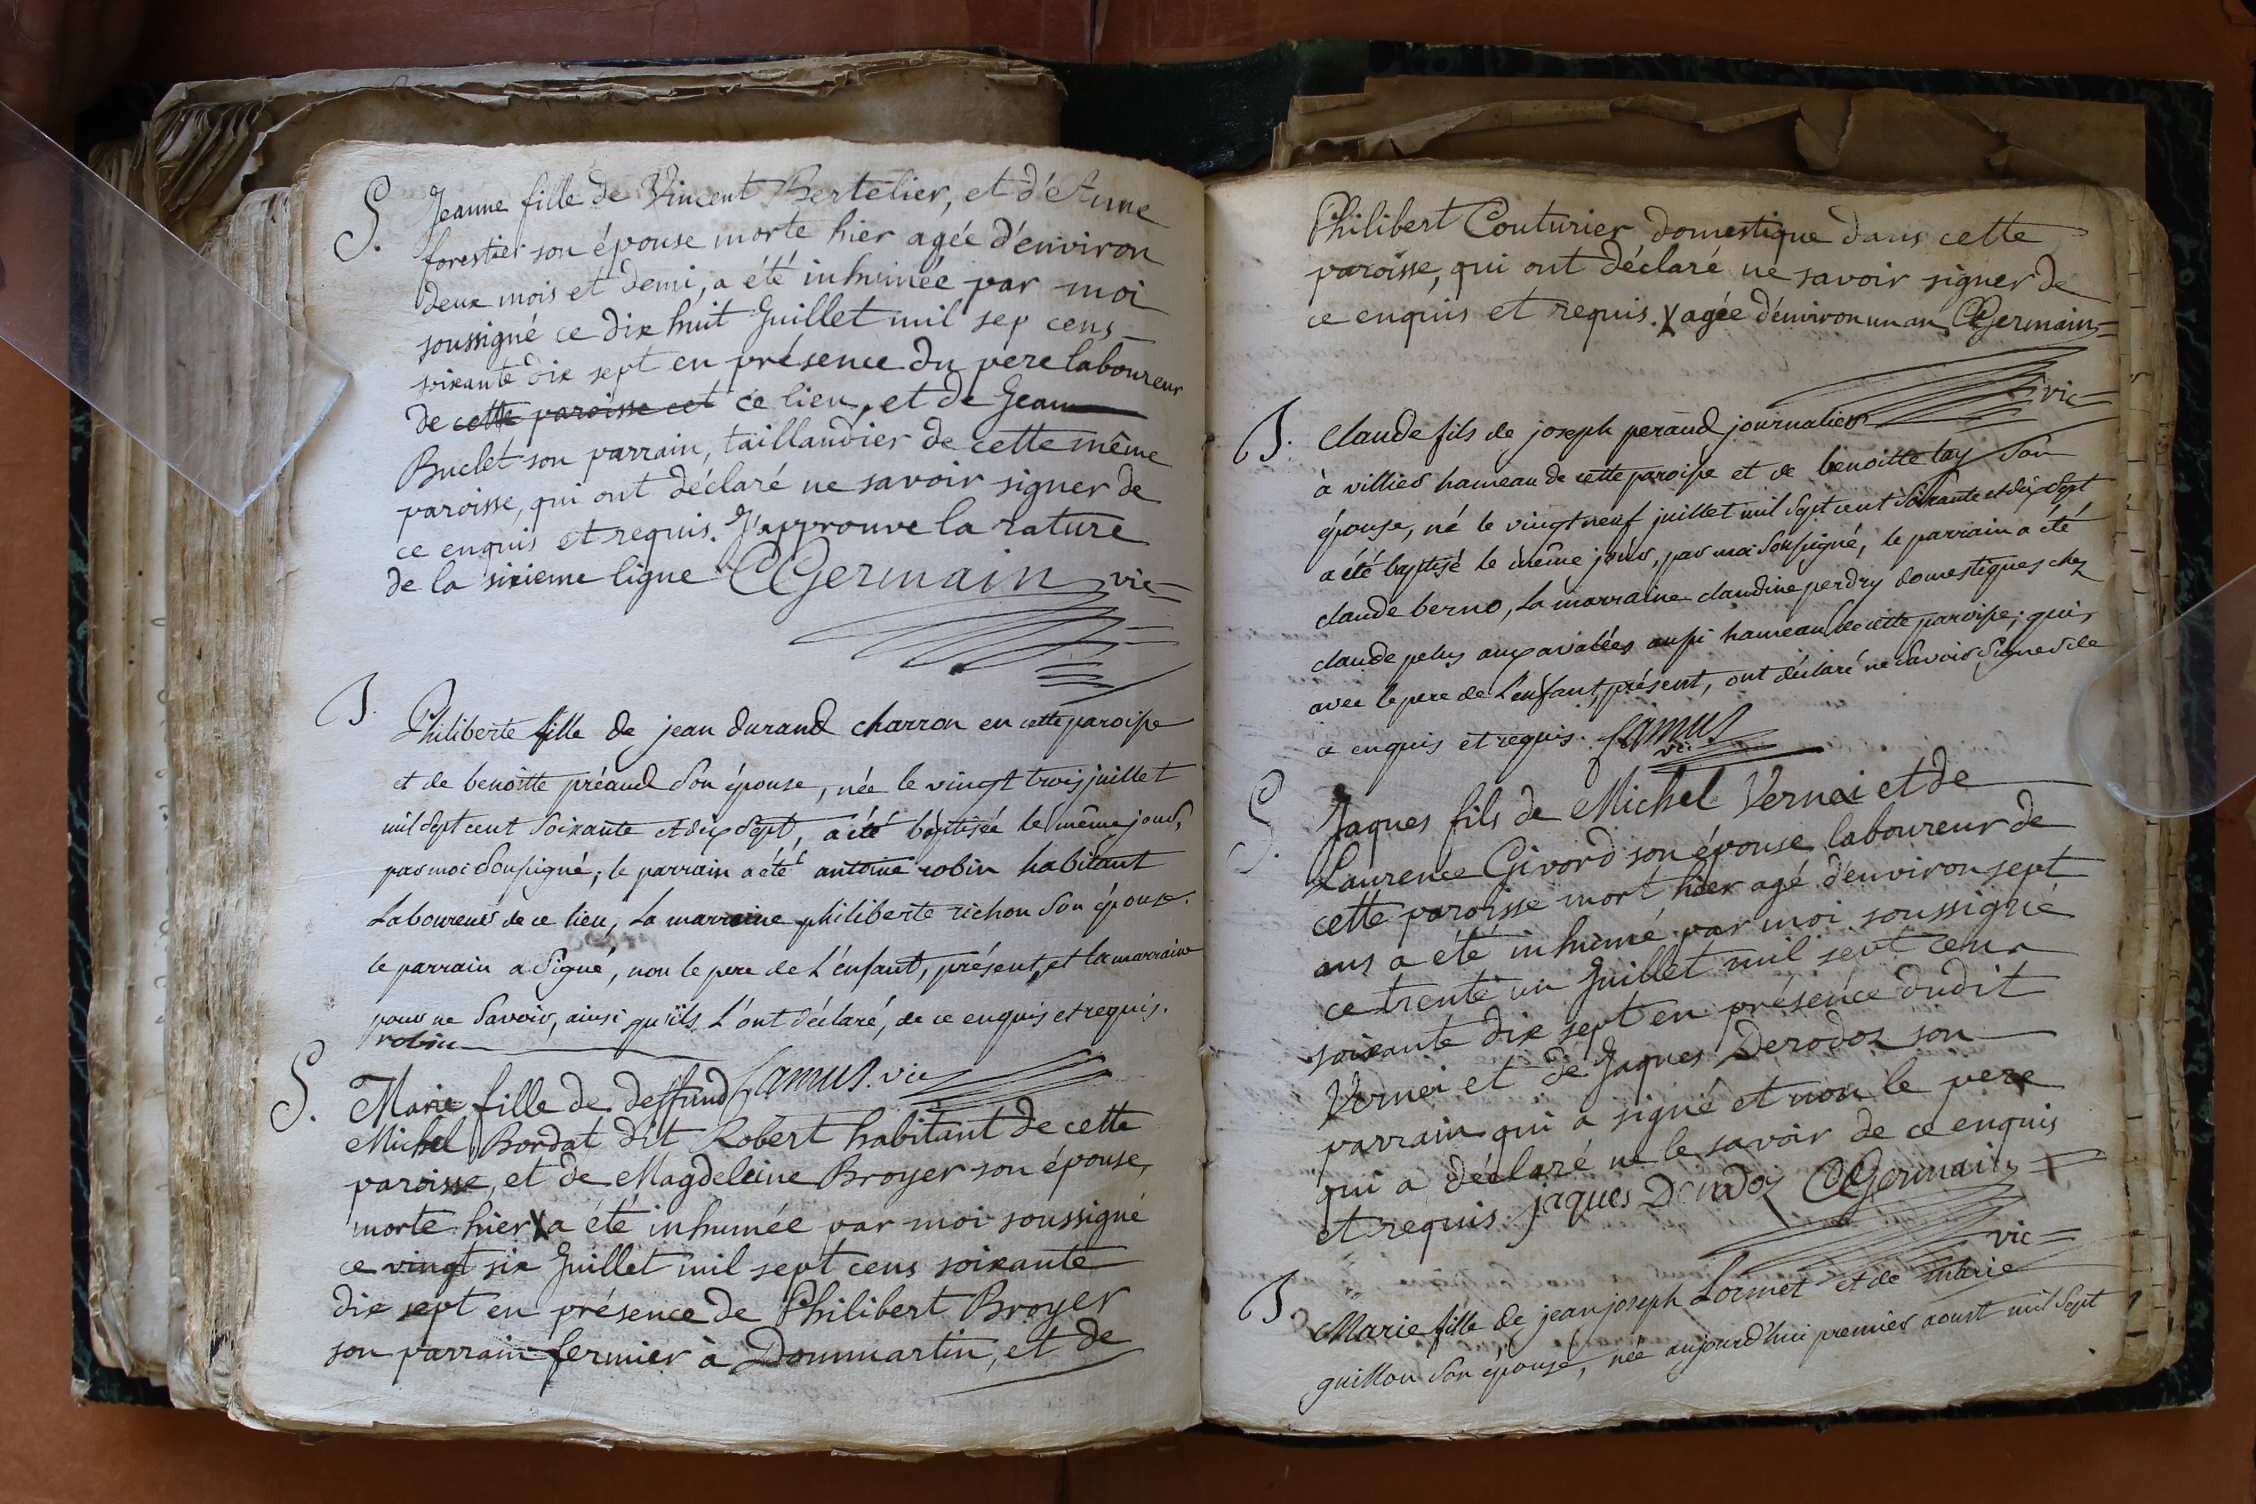 S. Jeanne fille de Vincent Bertelier, et d'Anne
forestier son épouse morte hier agée d'environ
deux mois et demi, a été inhumée par moi
soussigné ce dix huit Juillet mil sep cens
soixante dix sept en présence du pere laboureur
de cette paroisse cet ce lieu, et de Jean
Buclet son parrain, taillandier de cette même
paroisse, qui ont déclaré ne savoir signer de
ce enquis et requis. J'approuve la rature
de la sixieme ligne CGermain vic
B. Philiberte fille de jean durand charron en cette paroisse
et de benoitte préaud son épouse, née le vingt trois juillet
mil sept cent soixante et dix sept, a été baptisée le même jour,
par moi soussigné; le parrain a été antoine robin habitant
Laboureur de ce lieu, la marraine philiberte richon son épouse.
le parrain a signé, non le pere de L'enfant, présent, et la marraine
pour ne savoir, ainsi qu'ils L'ont déclaré, de ce enquis et requis.
robin
Camus. vic
S. Marie fille de deffund
Michel Bordat dit Robert habitant de cette
paroisse, et de Magdeleine Broyer son épouse,
morte hier X a été inhumée par moi soussigné
ce vingt six Juillet mil sept cens soixante
dix sept en présence de Philibert Broyer
son parrain fermier à Dommartin, et de
Philibert Couturier domestique dans cette
paroisse, qui ont déclaré ne savoir signer de
ce enquis et requis. X agée d'environ un an CGermain
vic
B. Claude fils de joseph peraud journalier
à villier hameau de cette paroisse et de benoitte lay son
épouse, né le vingt neuf juillet mil sept cent soixante et dix sept
a été baptisé le même jour, par moi soussigné, le parrain a été
claude berno, La marraine claudine perdry domestiques chez
claude pelus aux avalées aussi hameau de cette paroisse; qui,
avec le pere de L'enfant, présent, ont déclaré ne savoir signer de
ce enquis et requis. Camus
vic
S. Jaques fils de Michel Vernei et de
Laurence Givord son épouse laboureur de
cette paroisse mort hier agé d'environ sept
ans a été inhumé par moi soussigné
ce trente un Juillet mil sept cens
soixante dix sept en présence dudit
Vernei et de Jaques Derodoz son
parrain qui a signé et non le pere
qui a déclaré ne le savoir de ce enquis
et requis. jaques Derodoz CGermain
vic
B. Marie fille de jean joseph Lormet et de marie
guillon son épouse, née aujourd'hui premier aoust mil sept